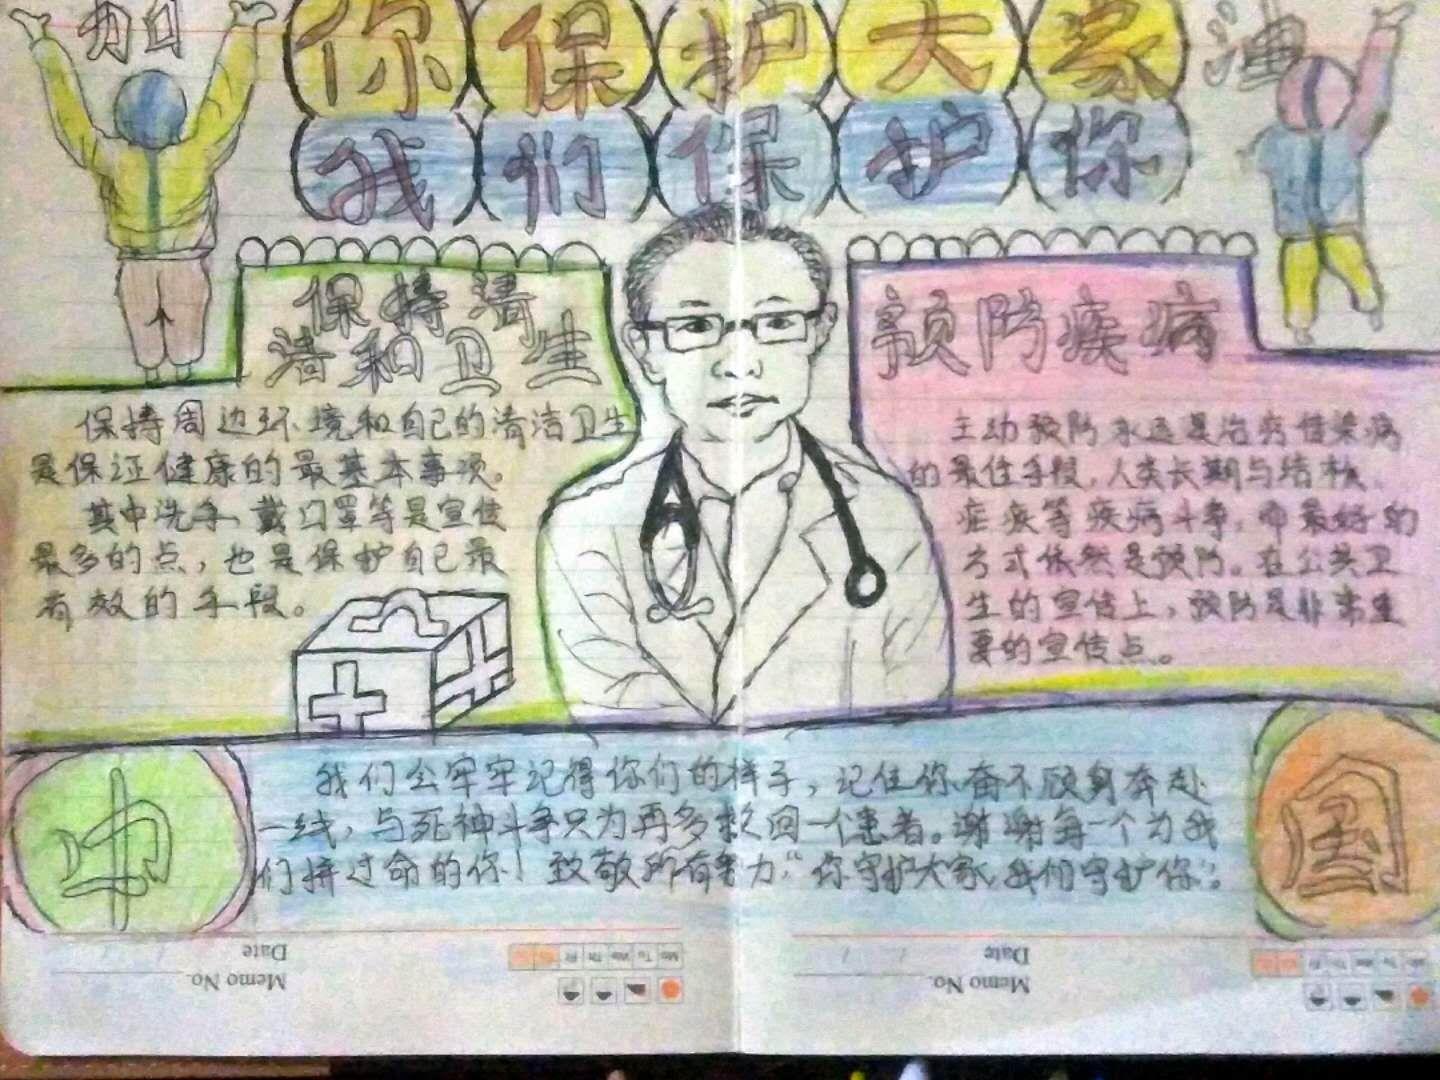 加
油
你保护大家
我们保护你
保持清
洁和卫生
保持周边环境和自己的清洁卫生
是保证健康的最基本事项。
其中洗手、戴口罩等是宣传
最多的点，也是保护自己最
有效的手段。
预防疾病
主动预防永远是治疗传染病
的最佳手段，人类长期与结核、
症疾等疾病斗争，而最好的
方式依然是预防。在公共卫
生的宣传上，预防是非常重
要的宣传点。
中
国
我们会牢牢记得你们的样子，记住你奋不顾身奔赴
一线，与死神斗争只为再多救回一个患者。谢谢每一个为我
们拼过命的你！致敬所有努力，“你守护大家，我们守护你”。
Date
Memo No.
Mo Tu We Th Fr
Date
Memo No.